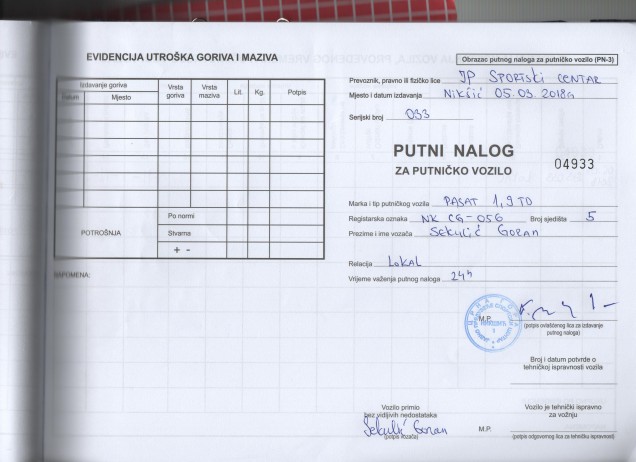 EVIDENCIJA UTROŠKA GORIVA I MAZIVA
Izdavanje goriva
Datum
Mjesto
Vrsta goriva
Vrsta maziva
Lit.
Kg.
Potpis
POTROŠNJA
Po normi
Stvarna
+ -
NAPOMENA:
Obrazac putnog naloga za putničko vozilo (PN-3)
Prevoznik, pravno ili fizičko lice JP SPORTSKI CENTAR
Mjesto i datum izdavanja Nikšić 05.03.2018g
Serijski broj 033
PUTNI NALOG
ZA PUTNIČKO VOZILO
04933
Marka i tip putničkog vozila PASAT 1,9 TD
Registarska oznaka NK CG-056 Broj sjedišta 5
Prezime i ime vozača Sekulić Goran
Relacija LOKAL
Vrijeme važenja putnog naloga 24h
M.P.
(potpis ovlašćenog lica za izdavanje
putnog naloga)
Broj i datum potvrde o
tehničkoj ispravnosti vozila
Vozilo primio
bez vidljivih nedostataka
Sekulić Goran
(potpis vozača)
M.P.
Vozilo je tehnički ispravno
za vožnju
(potpis odgovornog lica za tehničku ispravnost)